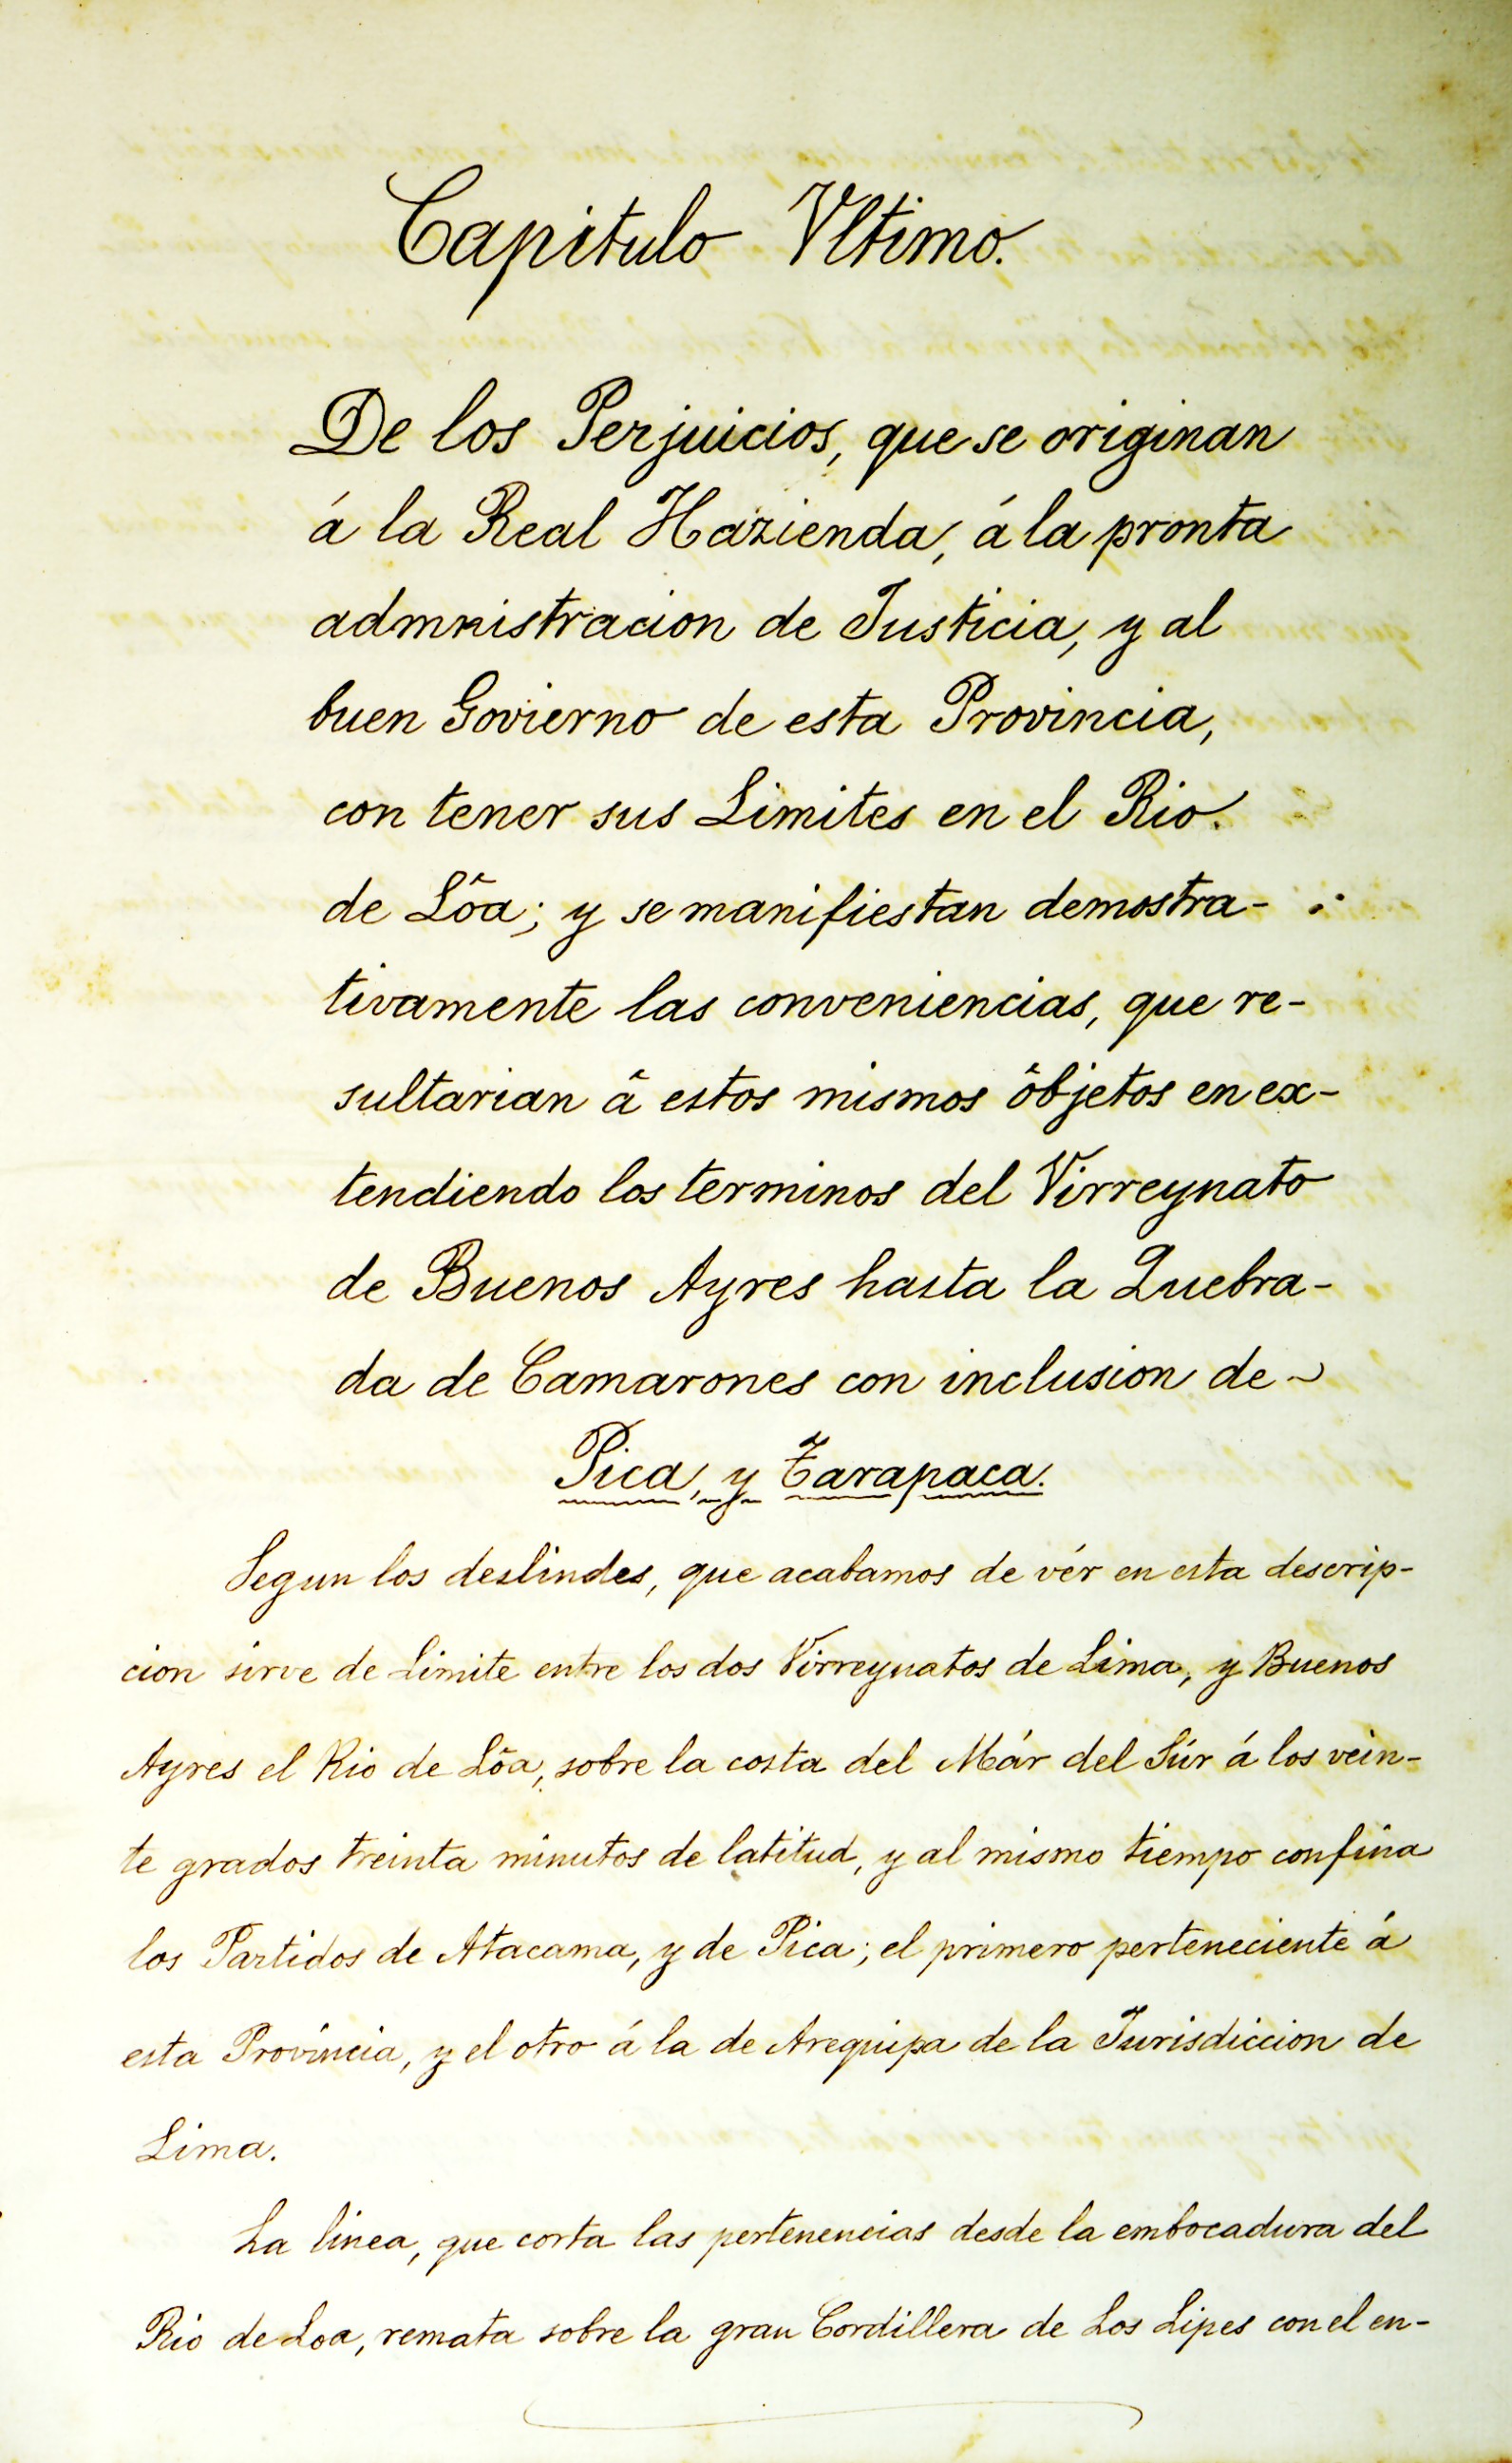 Capitulo Vltimo.
De los Perjuicios, que se originan
á la Real Hazienda, á la pronta
admnistracion de Justicia, y al
buen Govierno de esta Provincia,
con tener sus Limites en el Rio.
de Lôa; y se manifiestan demostra-
tivamente las conveniencias, que re-
sultarian â estos mismos ôbjetos en ex-
tendiendo los terminos del Virreynato
de Buenos Ayres hasta la Quebra-
da de Camarones con inclusion de ~
Pica, y Tarapaca.
Segun los deslindes, que acabamos de vér en esta descrip-
cion sirve de Limite entre los dos Virreynatos de Lima, y Buenos
Ayres el Rio de Lôa, sobre la costa del Már del Súr á los vein-
te grados treinta minutos de latitud, y al mismo tiempo confina
los Partidos de Atacama, y de Pica; el primero perteneciente á
esta Provincia, y el otro á la de Arequipa de la Jurisdiccion de
Lima.
La linea, que corta las pertenencias desde la embocadura del
Rio de Loa, remata sobre la gran Cordillera de Los Lipes con el en-